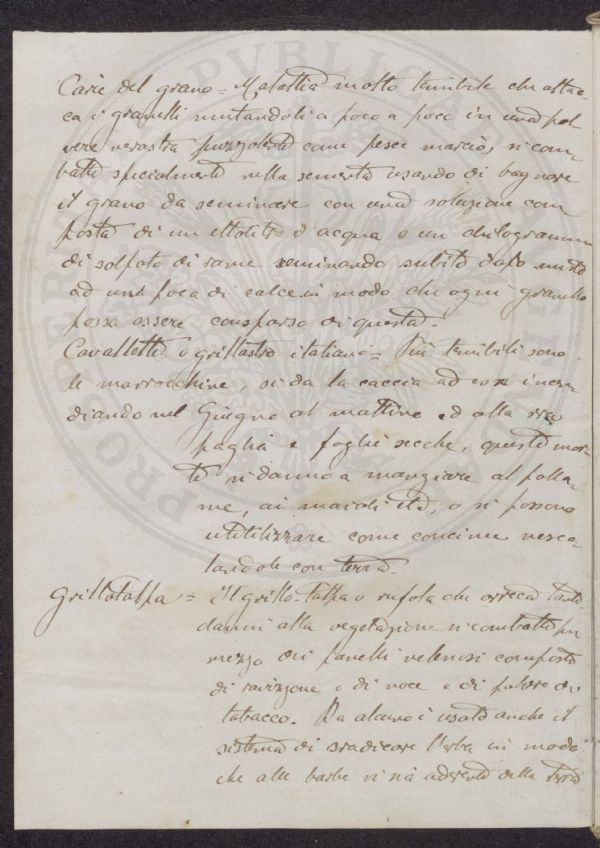 Carie del grano = Malattia molto temibile che attac-
ca i granelli mutandoli a poco a poco in una pol
vere nerastra puzzolente come pesce marcio, si com-
batte specialmente nella sementa usando di bagnare
il grano da seminare con una soluzione com
posta di un ettolitro d'acqua e un chilogramma
di solfato di rame seminando subito dopo misto
ad una poca di calce in modo che ogni granello
possa essere cosparso di questa.
Cavallette o grillastro italiano = Più temibili sono
le marrocchine, si da la caccia ad esse incen
diando nel Giugno al mattino ed alla sera
paglia e foglie secche, queste mor-
te si danno a mangiare al polla-
me, ai maiali etc, o si possono
utilizzare come concime mesco-
landole con terra.
Grillotalpa = il grillo-talpa o rufola che arreca tanti
danni alla vegetazione si combatte per
mezzo dei panelli velenosi composti
di ravizzone e di noce e di polvere di
tabacco. Da alcuni è usato anche il
sistema di sradicare l'erba in modo
che alle barbe vi sia aderente della terra
PVBLICAE
PROSPERITATI